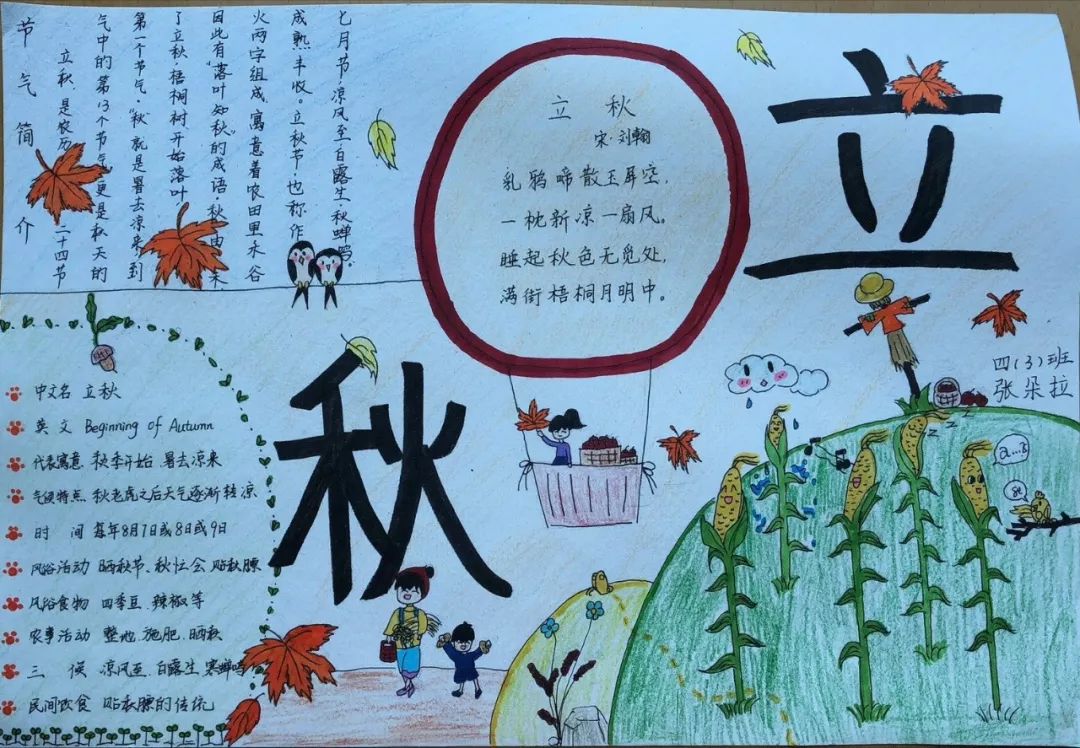 节气简介
立秋,是农历二十四节
气中的第13个节气,更是秋天的
第一个节气,“秋”就是暑去凉来,到
了立秋,梧桐树开始落叶
因此有“落叶知秋”的成语,秋由禾
火两字组成,寓意着农田里禾谷
成熟丰收。立秋节,也称作
七月节,凉风至白露生,秋蝉鸣.
立 秋
宋·刘翰
乳鸦啼散玉屏空,
一枕新凉一扇风。
睡起秋色无觅处,
满街梧桐月明中。
立
秋
四(3)班
张朵拉
中文名 立秋
英文 Beginning of Autumn
代表寓意 秋季开始 暑去凉来
气候特点 秋老虎之后天气逐渐转凉
时 间 每年8月7日或8日或9日
风俗活动 晒秋节、秋忙会 贴秋膘
风俗食物 四季豆、辣椒等
农事活动 整地、施肥、晒秋
三 候 凉风至、白露生、寒蝉鸣
民间饮食 贴秋膘的传统
z z z